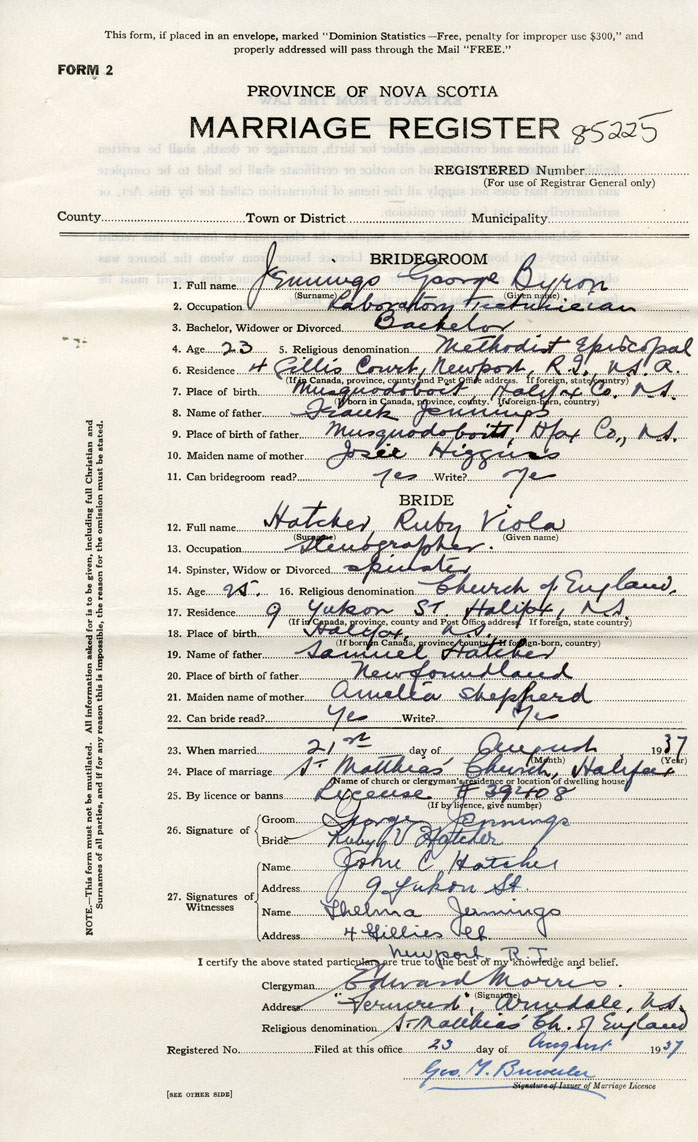 This form, if placed in an envelope, marked "Dominion Statistics—Free, penalty for improper use $300," and
properly addressed will pass through the Mail "FREE."
FORM 2
PROVINCE OF NOVA SCOTIA
MARRIAGE REGISTER 85225
REGISTERED Number
(For use of Registrar General only)
County Town or District Municipality
BRIDEGROOM
1. Full name Jennings George Byron
(Surname) (Given name)
2. Occupation Laboratory Technician
3. Bachelor, Widower or Divorced Bachelor
4. Age 23 5. Religious denomination Methodist Episcopal
6. Residence 4 Gillis Court, Newport, R.I., U.S.A.
(If in Canada, province, county and Post Office address. If foreign, state country)
7. Place of birth Musquodoboit Halifax Co. N.S.
(If born in Canada, province, county. If foreign-born, country)
8. Name of father Frank Jennings
9. Place of birth of father Musquodoboit, Hfax Co., N.S.
10. Maiden name of mother Josie Higgins
11. Can bridegroom read? Yes Write? Yes
BRIDE
12. Full name Hatcher, Ruby Viola
(Surname) (Given name)
13. Occupation Stenographer.
14. Spinster, Widow or Divorced spinster
15. Age 25. 16. Religious denomination Church of England.
17. Residence 9 Yukon St. Halifax, N.S.
(If in Canada, province, county and Post Office address. If foreign, state country)
18. Place of birth Halifax, N.S.
(If born in Canada, province, county. If foreign-born, country)
19. Name of father Samuel Hatcher
20. Place of birth of father Newfoundland
21. Maiden name of mother Amelia Shepherd
22. Can bride read? Yes Write? Yes
23. When married 21st day of August 1937
(Month) (Year)
24. Place of marriage St Matthias' Church, Halifax
(Name of church or clergyman's residence or location of dwelling house)
25. By licence or banns License # 392408
(If by licence, give number)
26. Signature of Groom George Jennings
Bride Ruby V Hatcher
27. Signatures of Witnesses
Name John C Hatcher
Address 9 Yukon St.
Name Thelma Jennings
Address 4 Gillies Ct
Newport, R.I.
I certify the above stated particulars are true to the best of my knowledge and belief.
Clergyman Edward Morris.
(Signature)
Address Armdale, N.S.
Religious denomination St Matthias' Ch. of England
Registered No. Filed at this office 23 day of August 1937
Geo.
Signature of Issuer of Marriage Licence
[SEE OTHER SIDE]
NOTE.—This form must not be mutilated. All information asked for is to be given, including full Christian and
Surnames of all parties, and if for any reason this is impossible, the reason for the omission must be stated.